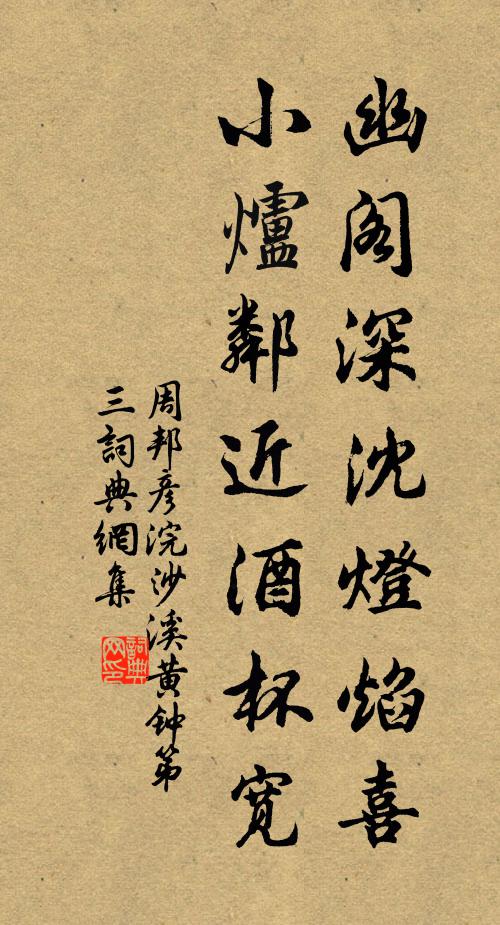 幽阁深沈燈焰喜
小爐鄰近酒杯寬
周邦彦浣沙溪黄钟第
三詞典網集
詞典网印